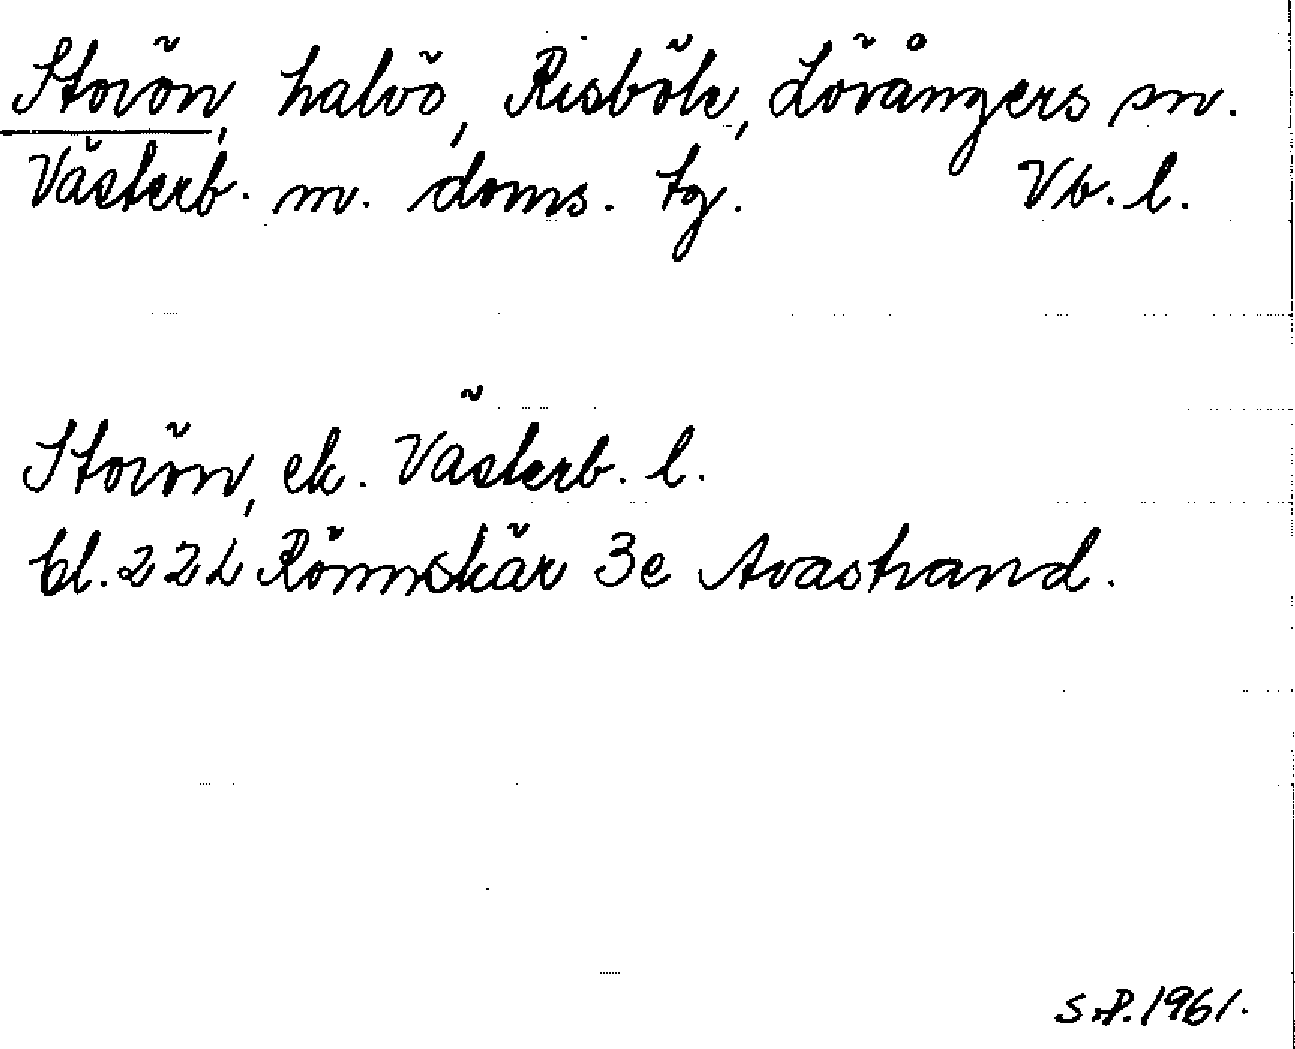 Storön, halvö, Risböle, Lövångers sn.
Västerb. m. doms. tg. Vb. l.
Storön, ek. Västerb. l.
bl. 22L Rönnskär 3e Avastrand.
S.P. 1961.